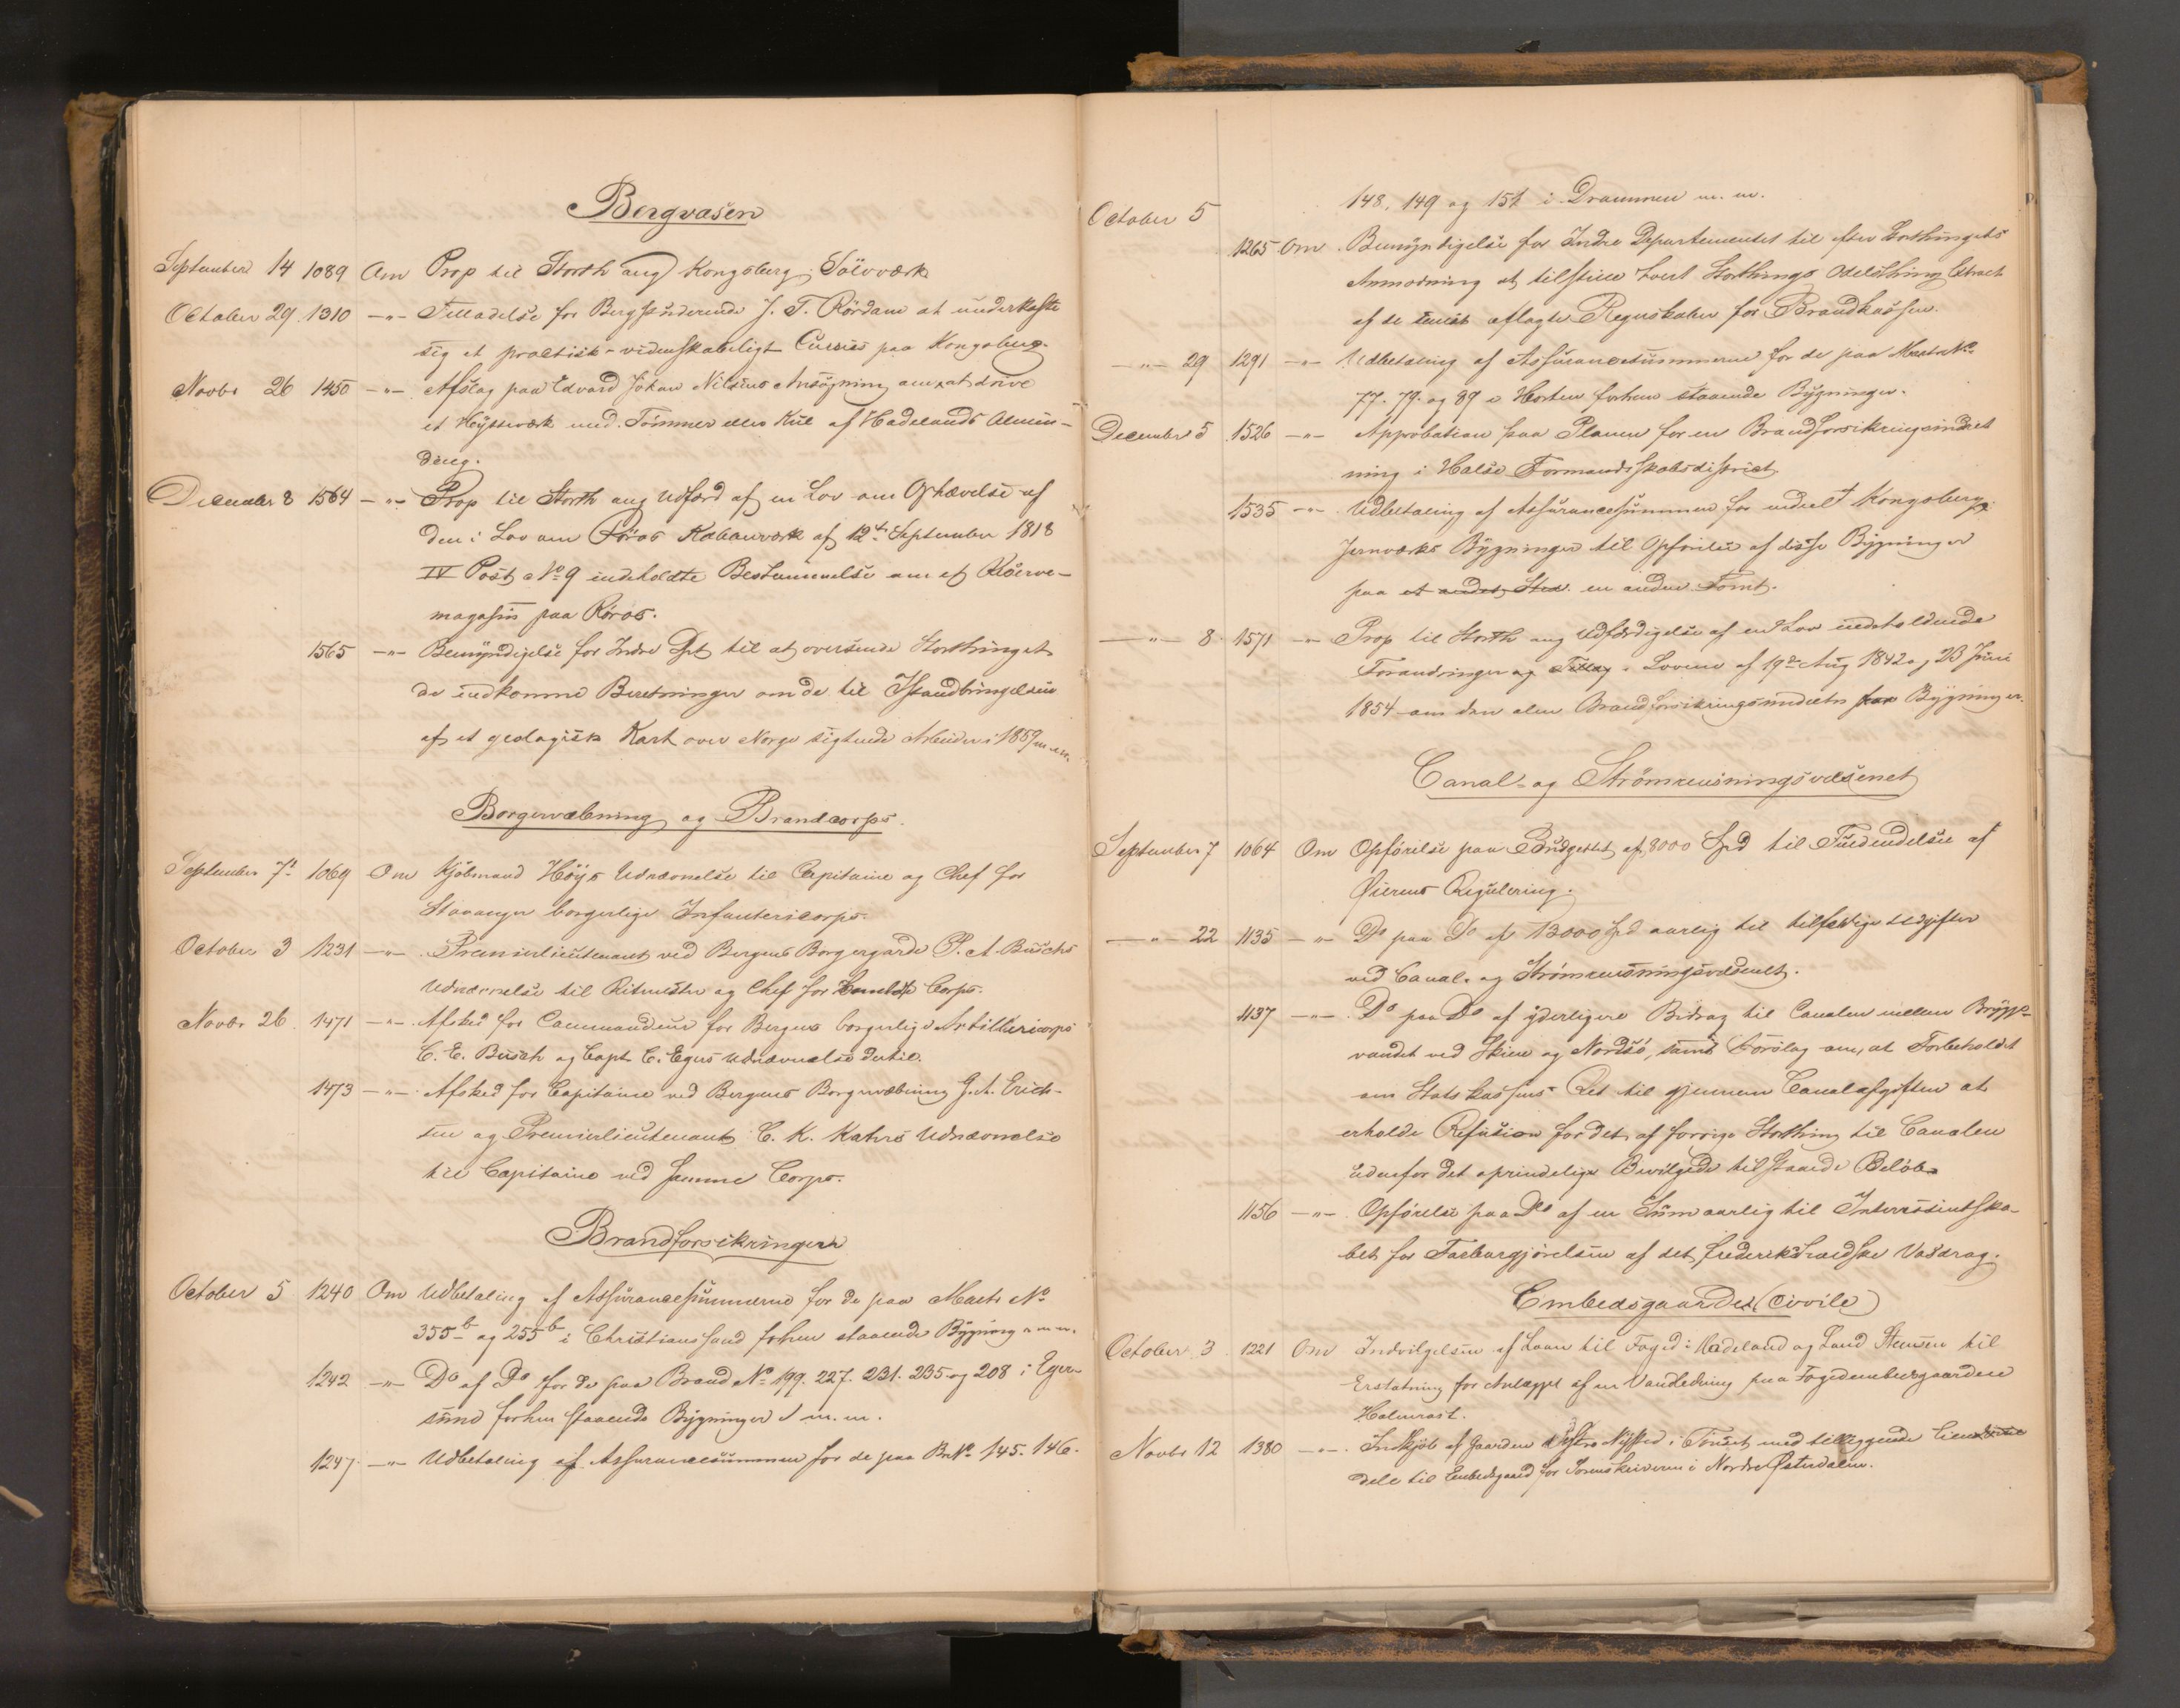 Bergvæsen
September 14 1089 Om Prop til Storth ang Kongsberg Sölvværk
October 29. 1310 —"— Tilladelse for Bergstuderende J. T. Rördam at underkaste
sig et practisk-videnskabeligt Cursus paa Kongsberg.
Novbr 26 1450 —"— Afslag paa Edvard Johan Nilsens Ansögning om, at drive
et Höysterværk med Tömmer eller Kul af Hadelands Almin-
ding.
December 8 1564 —"— Prop til Storth ang Udfærd af en Lov om Ophævelse af
den i Lov om Röros Kobberværk af 12te September 1818
IV Post No 9 indeholdte Bestemmelse om et Reserve-
magasin paa Röros.
1565 —"— Bemyndigelse for Indre Dpt til at oversende Storthinget
de indkomne Beretninger om de til Istandbringelsen
af et geologisk Kart over Norge sigtende Arbeider i 1859 m. m.
Borgervæbning og Brandcorps.
September 7 1069 Om Kjöbmand Höys Udnævnelse til Capitaine og Chef for
Stavanger borgerlige Infantericorps.
October 3 1231 —"— Premierlieutenant ved Bergens Borgergarde P. A. Buschs
Udnævnelse til Ritmester og Chef for Corps.
Novbr 26. 1471 —"— Afsked for Commandeur for Bergens borgerlige Artillericorps
C. E. Busch og Capt C. Egers Udnævnelse dertil.
1473 —"— Afsked for Capitaine ved Bergens Borgervæbning G. A. Erich-
sen og Premierlieutenant C. K. Kahrs Udnævnelse
til Capitaine ved samme Corps.
Brandforsikringen
October 5 1240 Om Udbetaling af Assurancesummerne for de paa Matr No
355b og 255b i Christianssund forhen staaende Bygning m. m.
1242 —"— Do af Do for de paa Brand No 199. 227. 231. 235 og 208 i Eger-
sund forhen staaende Bygninger m. m.
1247 —"— Udbetaling af Assurancesummen for de paa Br No 145. 146.
October 5 148, 149 og 151 i Drammen m. m.
1265 Om Bemyndigelse for Indre Departementet til efter Storthingets
Anmodning at tilstille hvert Storthings Odelsthing Extract
af de senest aflagte Regnskaber for Brandkassen.
—"— 29 1291 —"— Udbetaling af Assurancesummerne for de paa Matr No
77. 79. og 89 i Horten forhen staaende Bygninger.
December 5 1526 —"— Approbation paa Planen for en Brandforsikringsindret
ning i Halse Formandsskabsdistrict
1535 —"— Udbetaling af Assurancesummen for endeel Kongsberg
Jernværks Bygninger til Opförelse af disse Bygninger
paa et andet Sted en anden Tomt.
—"— 8. 1571 —"— Prop til Storth ang Udfærdigelse af en Lov indeholdende
Forandringer og Tillæg i Lovene af 19de Aug 1842 og 23 Juni
1854 om den alm Brandforsikringsindretn for Bygninger.
Canal- og Strömrensningsvæsenet
September 7 1064 Om Opförelse paa Budgettet af 8000 Spd til Fuldendelse af
Öierens Regulering.
—"— 22 1135 —"— Do paa Do af 13000 Spd aarlig til tilfældige Udgifter
ved Canal- og Strömrensningsvæsenet.
1137 —"— Do paa Do af yderligere Bidrag til Canalen mellem Brygge-
vandet ved Skien og Nordsö, samt Forslag om, at Forbeholdet
om Statskassens Ret til gjennem Canalafgiften at
erholde Refusion for det af forrige Storthing til Canalen
udenfor det oprindelige Bevilgede tilstaaede Belöb
1156 —"— Opförelse paa Do af en Sum aarlig til Interessentska-
bet for Farbargjörelsen af det frederikshaldske Vasdrag.
Embedsgaarde (civile)
October 3 1221 Om Indvilgelsen af Laan til Foged i Hadeland og Land Stensen til
Erstatning for Anlægget af en Vandledning paa Fogedembedsgaarden
Halmrast.
Novbr 12 1380 —"— Indkjöb af Gaarden Nysted i Tönset med tilliggende Eien
dele til Embedsgaard for Sorenskriveren i Nordre Østerdalen.